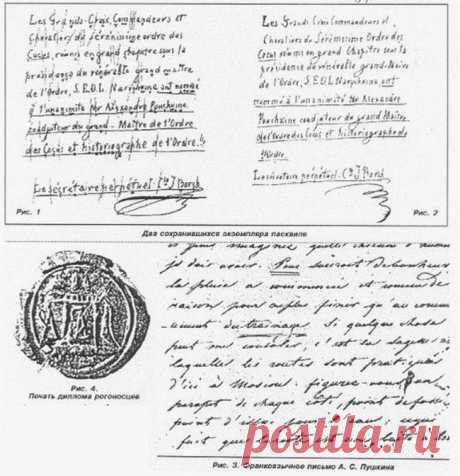 Les Grands-Croix, Commandeurs et
Chevaliers du sérénissime ordre des
Cocus, réunis en grand chapitre sous la
présidence du vénérable grand maître
de l'Ordre, S.E.D.L. Narychkine, ont nommé
à l'unanimité Mr Alexandre Pouchkine
coadjuteur du grand-Maître de l'Ordre
des Cocus et historiographe de l'Ordre.
Le sécrétaire perpétuel: Cte J. Borch
Рис. 1
Les Grands-Croix Commandeurs et
Chevaliers du Sérénissime Ordre des
Cocus réunis en grand Chapitre sous la
présidence du vénérable grand-Maître
de l'Ordre, S.E.D.L. Narychkine ont
nommé à l'unanimité Mr Alexandre
Pouchkine coadjuteur du grand Maître
de l'Ordre des Cocus et historiographe de
l'Ordre.
Le sécrétaire perpétuel: Cte J. Borch
Рис. 2
Два сохранившихся экземпляра пасквиля
Рис. 4.
Печать диплома рогоносцев
je dois avoir. Pour surcroit de bonheur
la pluie a commencé et
raison pour
du traînage. Si quelque chose
peut me consoler, c'est la sagesse
laquelle les routes sont pratiquées
d'ici à Moscou: figurez-vous un
parapet de chaque côté, point de fossé
point d'issue pour l'eau, ce qui
fait que la route est une boîte à
Рис. 3. Франкоязычное письмо А. С. Пушкина
postila.ru